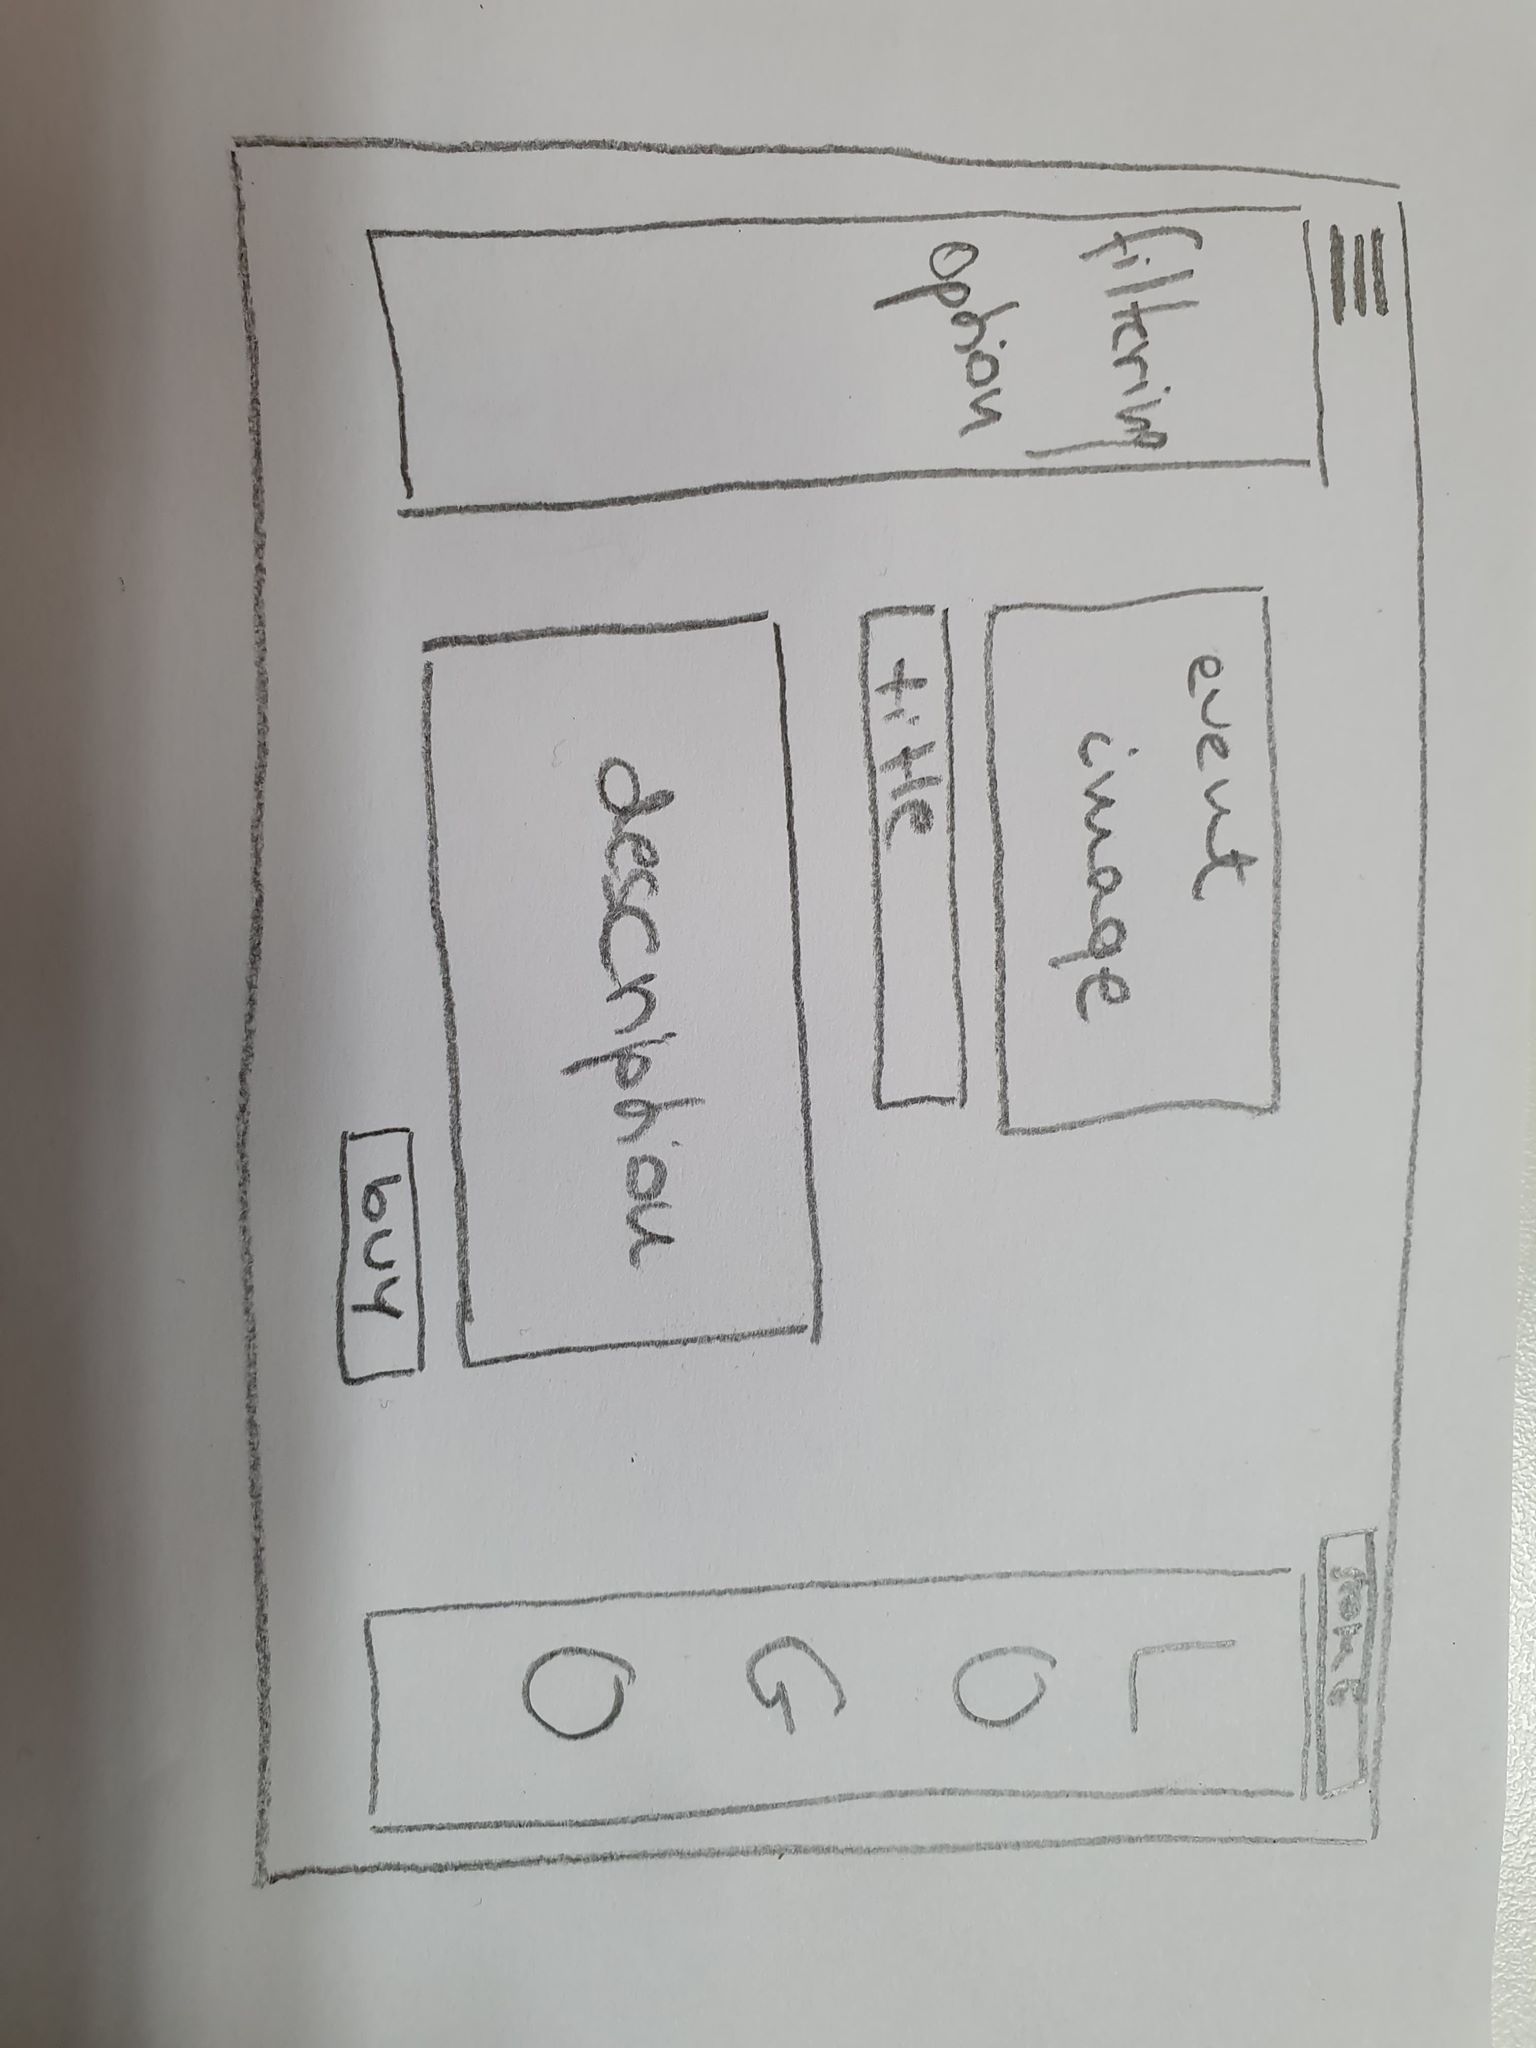 filtering
option
event
image
title
description
buy
L
O
G
O